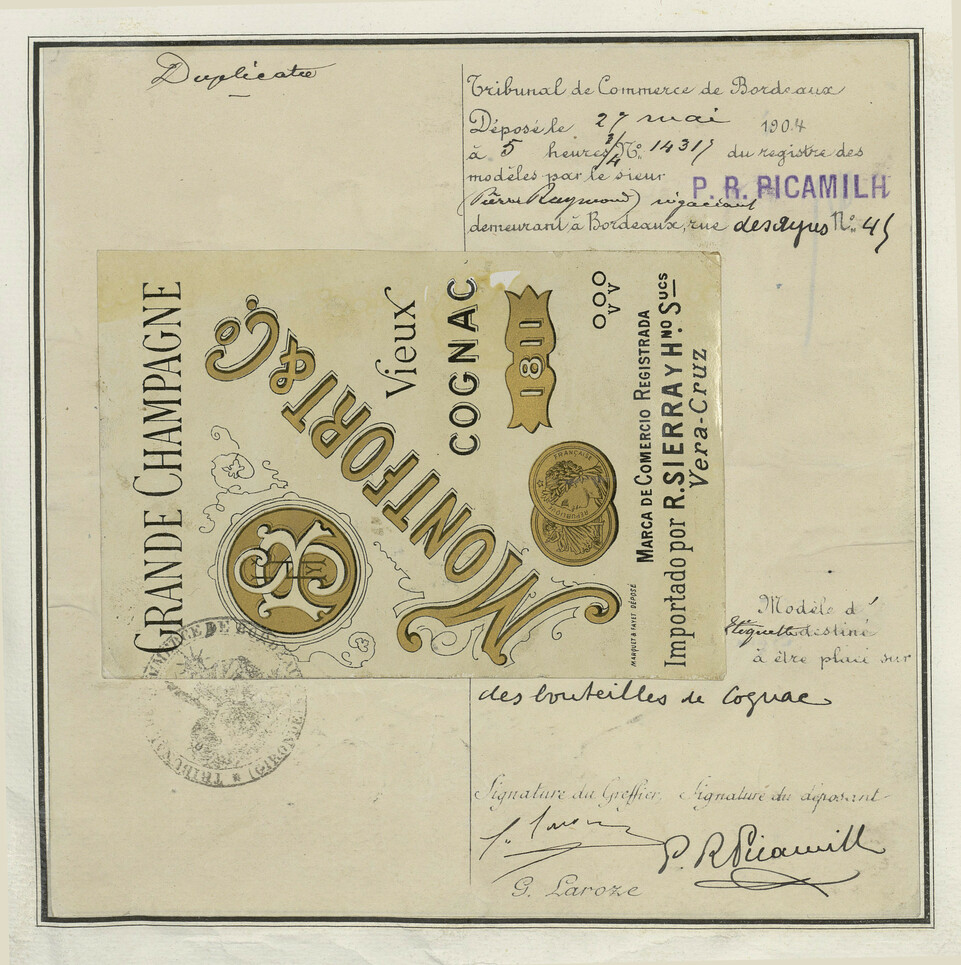 Duplicata
Tribunal de Commerce de Bordeaux
Déposé le 27 mai 1904
à 5 heures 3/4 N° 1431 du registre des
modèles par le sieur P. R. PICAMILH
(Pierre Raymond) négociant
demeurant à Bordeaux, rue des Ayres N° 45
GRANDE CHAMPAGNE
MONTFORT & Co
Vieux
COGNAC
1811
OOO
VV
RÉPUBLIQUE FRANÇAISE
MARQUET & FAYET DÉPOSÉ
MARCA DE COMERCIO REGISTRADA
Importado por R. SIERRA Y HNO SUCS
Vera-Cruz
Modèle d'
étiquette destiné
à être placé sur
des bouteilles de Cognac
TRIBUNAL DE COMMERCE DE BORDEAUX (GIRONDE)
Signature du Greffier, Signature du déposant
P. R. Picamilh
G. Laroze